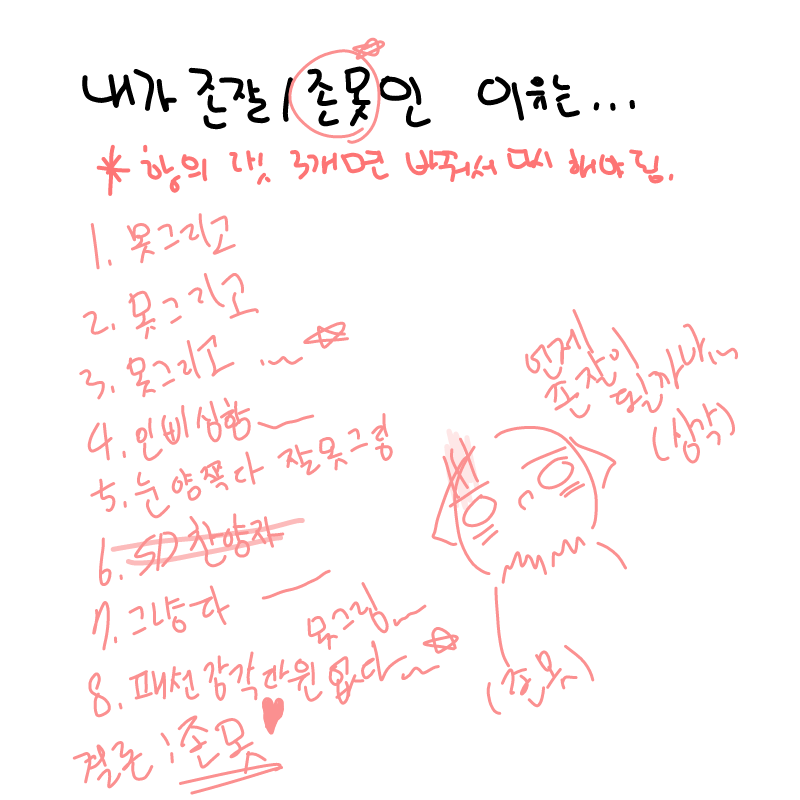 내가 존잘/존못인 이유는...
* 항의 댓 3개면 바꿔서 다시 해야 됨.
1. 못그리고
2. 못그리고
3. 못그리고 ...~
4. 인삐심함~
5. 눈양쪽다 잘못그림
6. SD찬양자
7. 그냥다 못그림~
8. 패션감각따윈없다~
결론: 존못
언제
존잘이
될까나...
(삼각)
(존못)